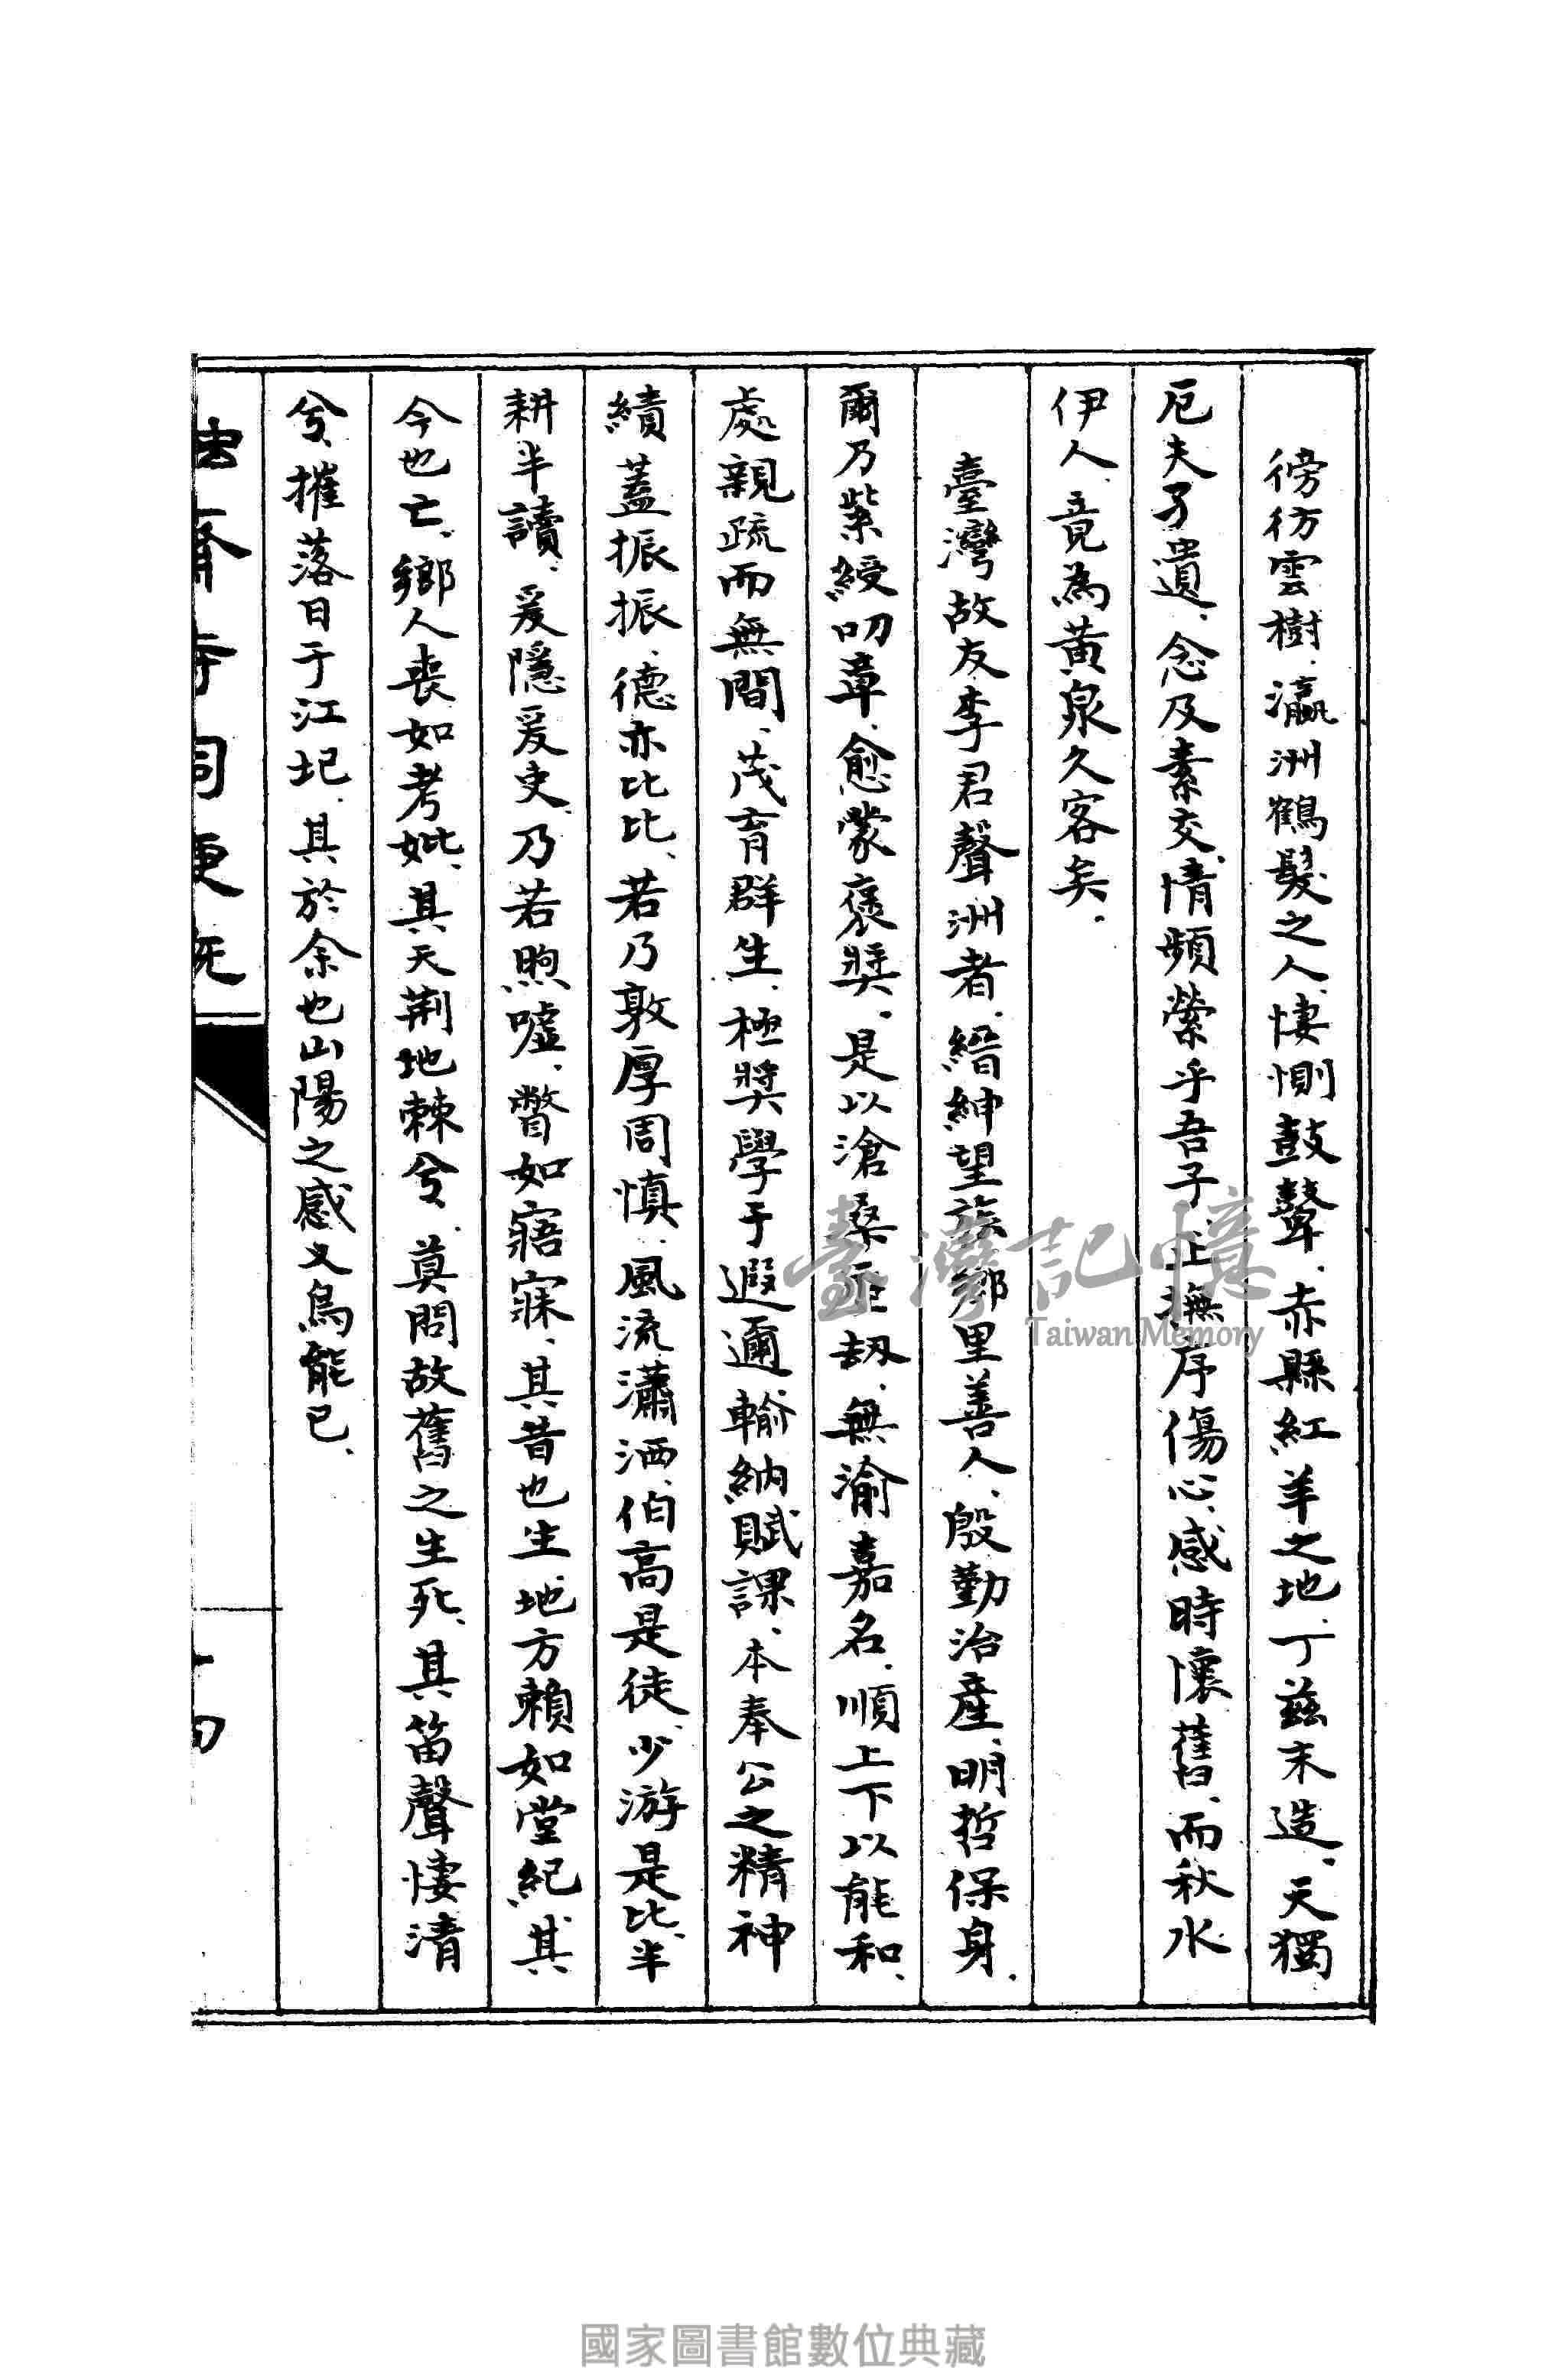 徬彷雲樹、瀛洲鶴髮之人、悽惻鼓鼙、赤縣紅羊之地、丁茲末造、天獨
厄夫孑遺、念及素交、情頻縈乎吾子、止撫序傷心、感時懷舊、而秋水
伊人、竟為黃泉久客矣.
臺灣故友李君聲洲者、縉紳望族、鄉里善人、殷勤治產、明哲保身.
爾乃紫綬叨章、愈蒙褒獎.是以滄桑歷劫、無渝嘉名、順上下以能和、
處親疏而無間、茂育群生、極獎學于遐邇、輸納賦課、本奉公之精神
績蓋振振、德亦比比、若乃敦厚周慎、風流瀟洒、伯高是徒、少游是比、半
耕半讀、爰隱爰吏、乃若煦噓、瞥如寤寐、其昔也生、地方賴如堂紀、其
今也亡、鄉人喪如考妣、其天荊地棘兮、莫問故舊之生死、其笛聲悽清
兮、摧落日于江圯、其於余也山陽之感又烏能已、
臺灣記憶
Taiwan Memory
國家圖書館數位典藏